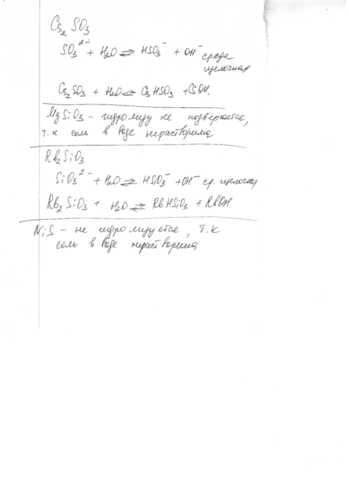 Cs₂SO₃
SO₃²⁻ + H₂O ⇌ HSO₃⁻ + OH⁻ среда
щелочная
Cs₂SO₃ + H₂O ⇌ CsHSO₃ + CsOH.
MgSiO₃ - гидролизу не подвергается,
т.к соль в воде нерастворима
Rb₂SiO₃
SiO₃²⁻ + H₂O ⇌ HSO₃⁻ + OH⁻ ср. щелочная
Rb₂SiO₃ + H₂O ⇌ RbHSiO₃ + RbOH
NiS - не гидролизуется, т.к
соль в воде нерастворима